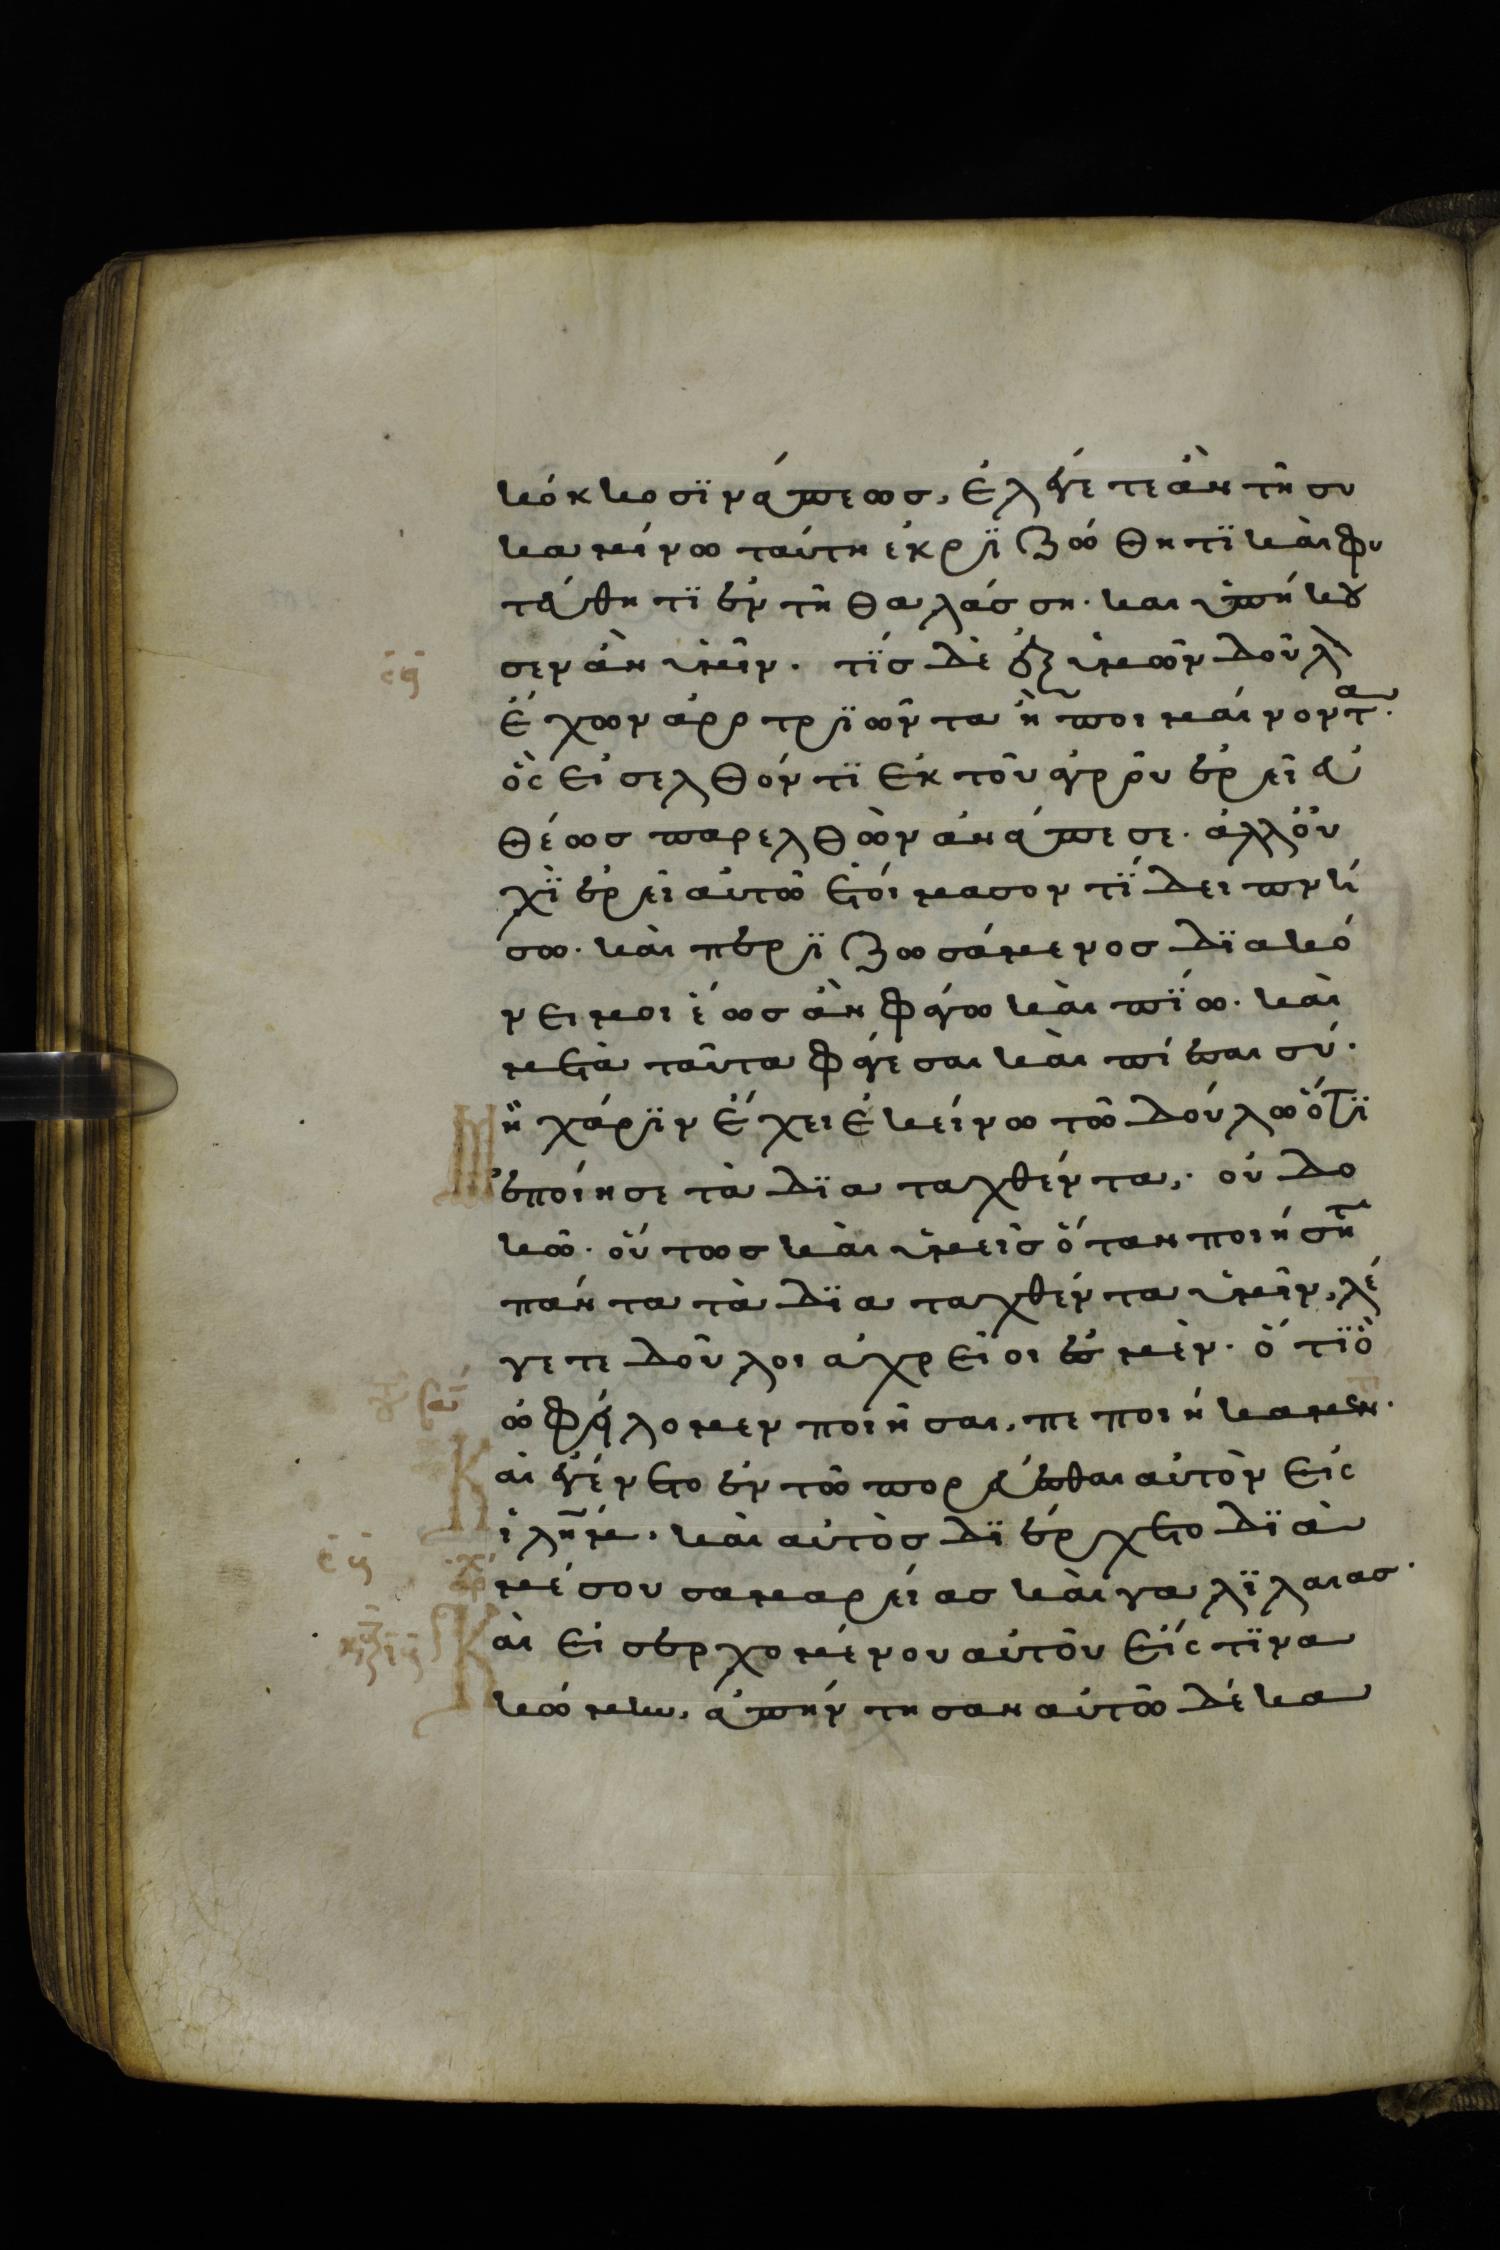 κόκκο σϊνάπεως, ἐλέγετε ἀν τῆ συ
καμίνω ταύτη ἐκρϊζώθητϊ καὶ φυ
τεύθητϊ ἐν τῆ θαλάσση· και ὑπήκου
σεν ἀν ὑμῖν· τίς δὲ ἐξ ὑμῶν δοῦλ
ἔχων ἀροτρϊῶντα ἢ ποιμαίνοντα·
ὃς εἰσελθόντϊ ἐκ τοῦ ἀγροῦ ἐρεῖ εὐ
θέως παρελθὼν ἀνάπεσε· ἀλλ' οὐ
χῒ ἐρεῖ αὐτῶ ἑτοίμασον τΐ δειπνή
σω· καὶ περϊζωσάμενος δϊακό
νει μοι ἑως ἀν φάγω καὶ πΐω· καὶ
μετὰ ταῦτα φάγεσαι καὶ πίεσαι σύ·
ἢ χάρϊν ἔχει ἐκείνω τῶ δούλω ὅτϊ
ἐποίησε τὰ δϊαταχθέντα,· οὐ δο
κῶ· οὕτως καὶ ὑμεῖς ὅταν ποιήσητε
πάντα τὰ δϊαταχθέντα ὑμῖν, λέ
γετε δοῦλοι ἀχρεῖοι ἐσμὲν· ὅτϊ ὃ
ὠφείλομεν ποιῆσαι, πεποιήκαμεν·
Καὶ ἐγένετο ἐν τῶ πορεύεσθαι αὐτὸν εἰς
ἱλῆμ· καὶ αὐτὸς δϊέρχετο δϊὰ
μέσου σαμαρείας καὶ γαλϊλαιας·
Καὶ εἰσερχομένου αὐτοῦ εἴς τϊνα
κώμην, ἀπήντησαν αὐτῶ δέκα